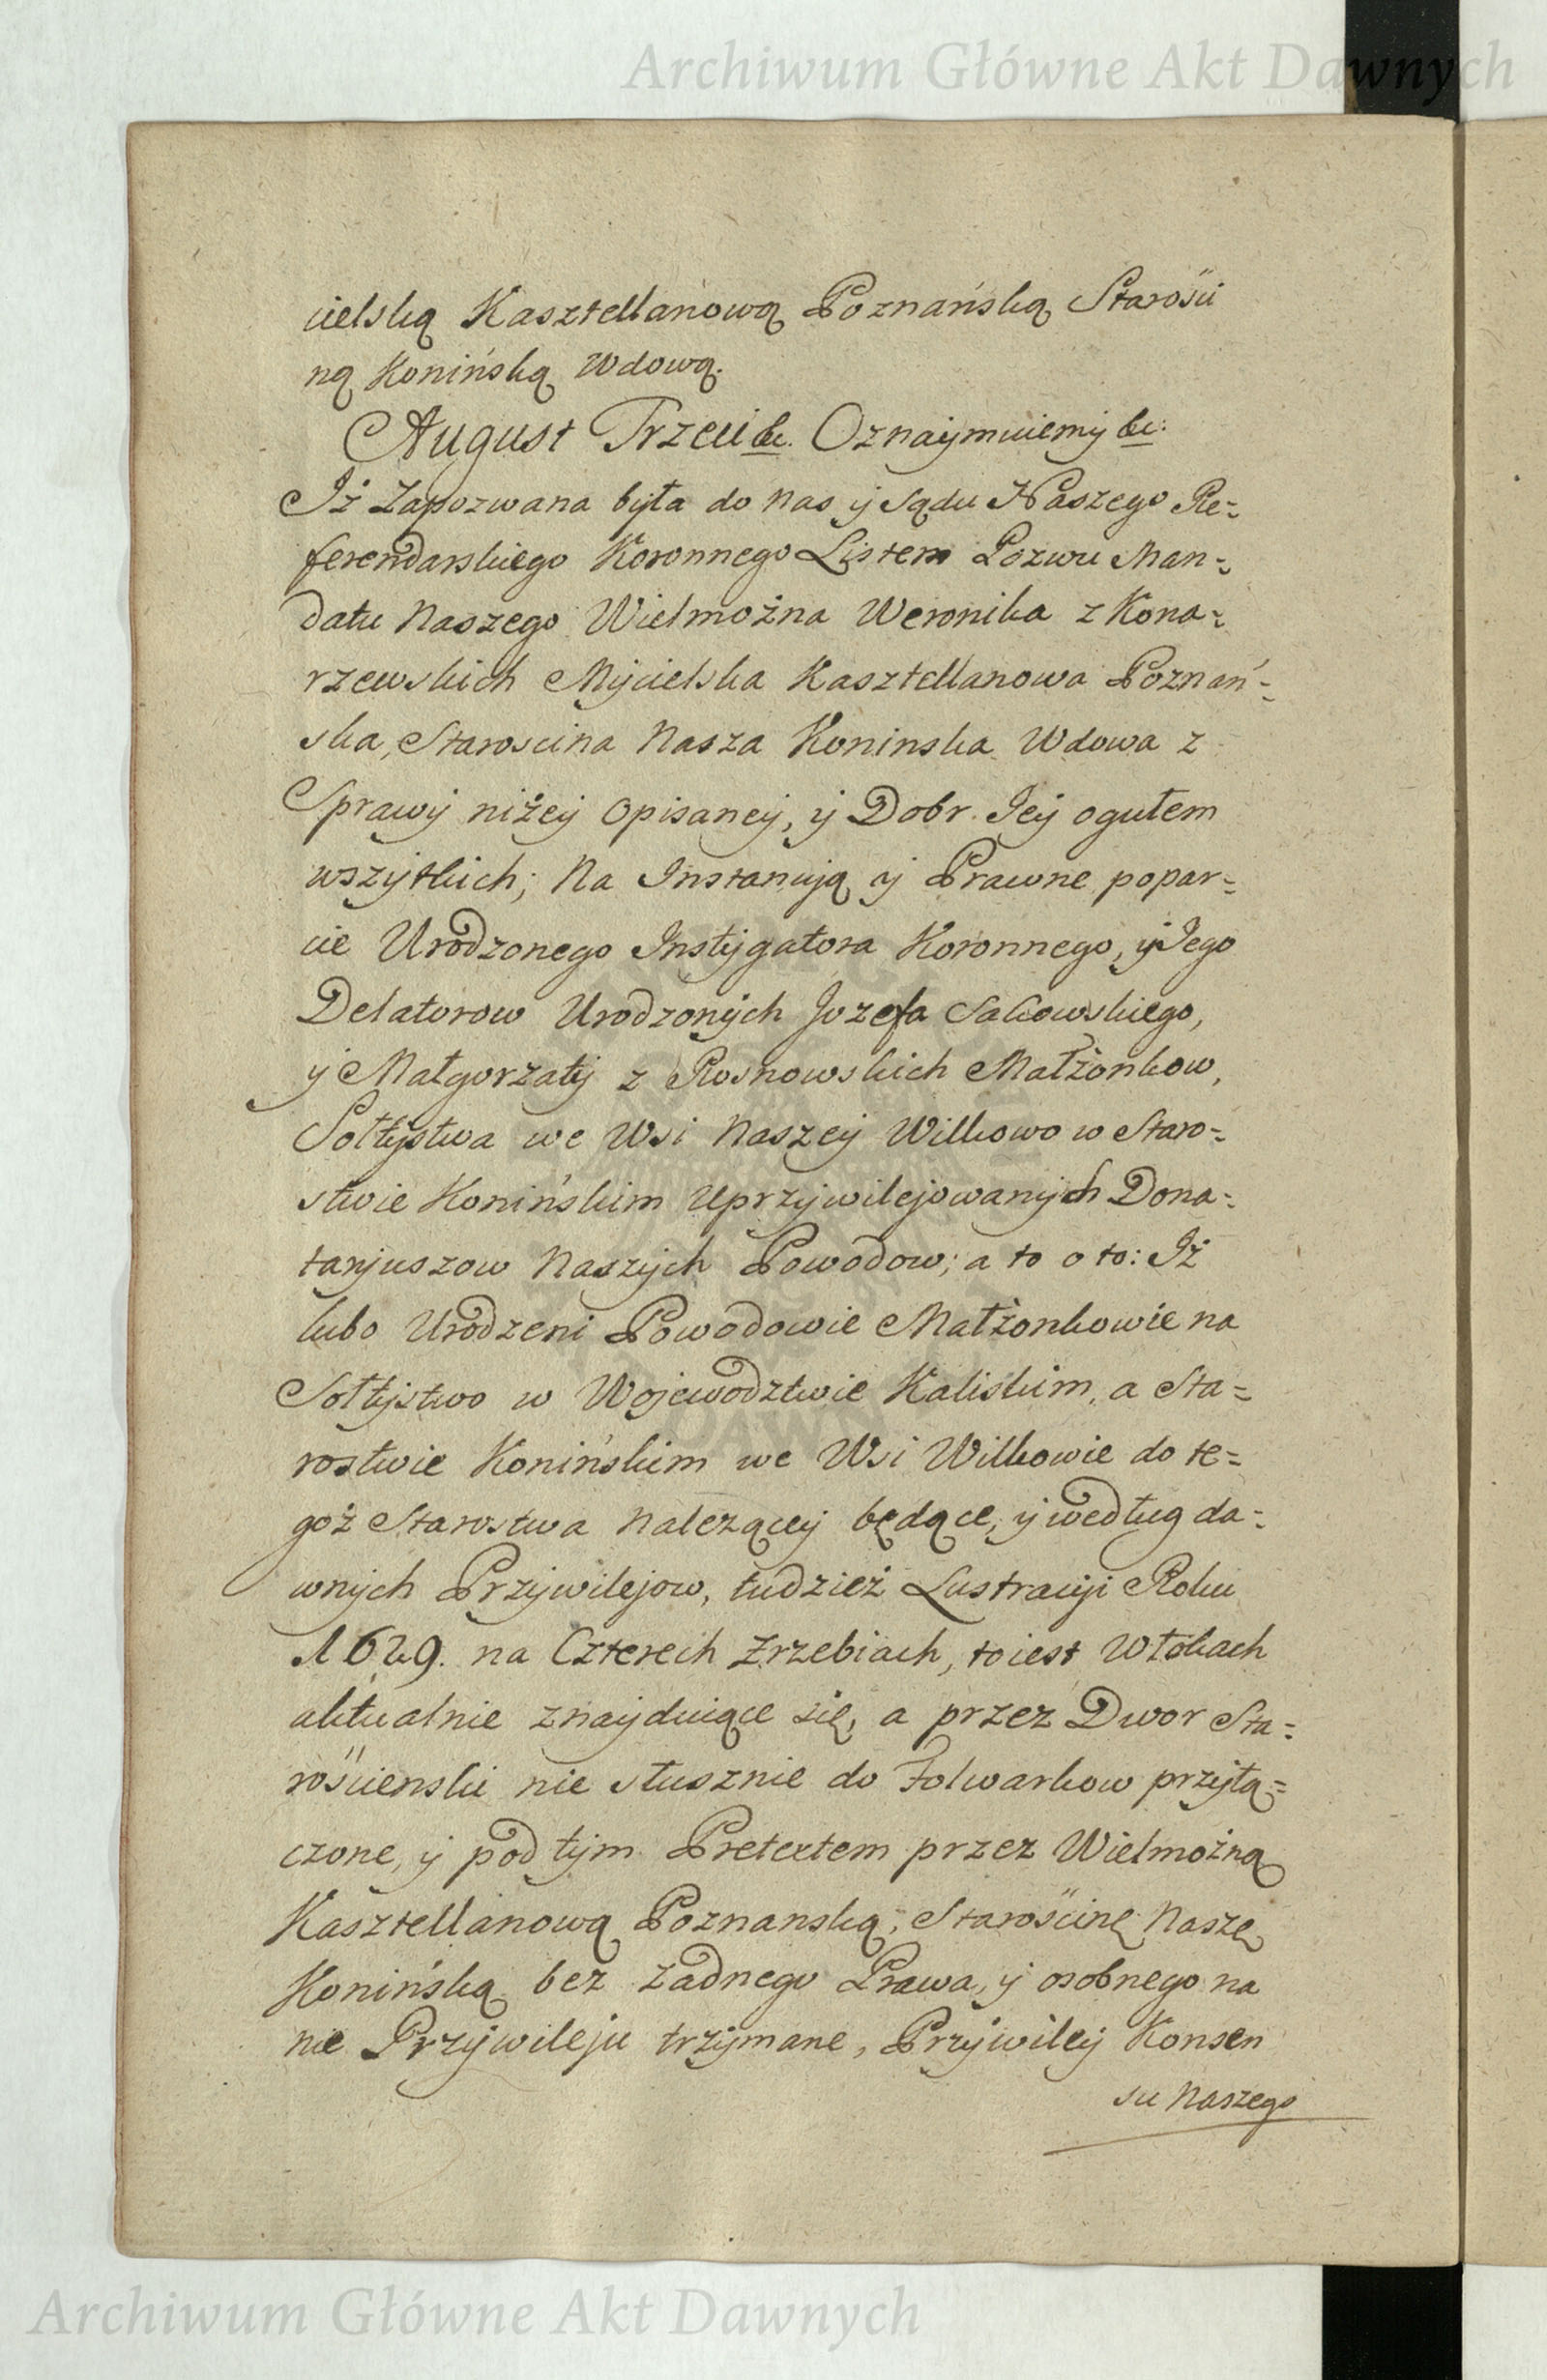 Archiwum Główne Akt Dawnych
cielską Kasztellanową Poznańską Starości
ną Konińską Wdową.
August Trzeci &c. Oznaymuiemy &c:
Iż Zapozwana była do Nas y Sądu Naszego Re=
ferendarskiego Koronnego Listem Pozwu Man=
datu Naszego Wielmożna Weronika z Kona=
rzewskich Mycielska Kasztellanowa Poznań=
ska, Staroscina Nasza Koninska Wdowa z
Sprawy niżey Opisaney, y Dobr Jey ogułem
wszytkich; Na Instancyą y Prawne popar=
cie Urodzonego Instygatora Koronnego, y Jego
Delatorow Urodzonych Jozefa Sakowskiego,
y Małgorzaty z Rosnowskich Małżonkow,
Sołtystwa we Wsi Naszey Wilkowo w Staro=
stwie Konińskim Uprzywilejowanych Dona=
taryuszow Naszych Powodow; a to o to: Iż
lubo Urodzeni Powodowie Małżonkowie na
Sołtystwo w Wojewodztwie Kaliskim, a Sta=
rostwie Konińskim we Wsi Wilkowie do te=
goż Starostwa Nalezącey będące, y według da=
wnych Przywilejow, tudzież Lustracyi Roku
1629. na Czterech Zrzebiach, to iest Włokach
aktualnie znayduiące się, a przez Dwor Sta=
rościenski nie słusznie do Folwarkow przyłą=
czone, y pod tym Pretextem przez Wielmożną
Kasztellanową Poznanską, Starościnę Naszę
Konińską bez Zadnego Prawa, y osobnego na
nie Przywileju trzymane, Przywiley Konsen
su Naszego
Archiwum Główne Akt Dawnych